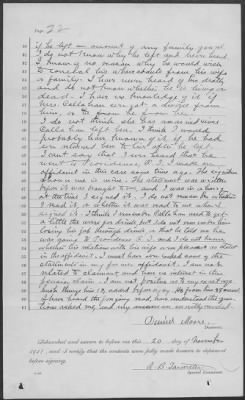 Page 22
he left on account of any family quarrel
I do not know why he left and never heard
I know of no reason why he would wish
to conceal his whereabouts from his wife
or family. I have never heard of his death
and do not know whether he is living or
dead. I have no knowledge if
Mrs. Callahan ever got a divorce from
him, or he from her.
I do not think she has married since
Callahan left her. I think I would
probably have known of it if she had
for she lived near to him after he left
I can't say that I ever heard that he
went to Providence R I. I made an
affidavit in this case some time ago. The signature
shown me is mine. The statement was written
before it was brought to me, and I was in a hurry
at the time I signed it. I do not
I read it, or whether it was read to me when I
signed it. I think I remember Callahan used to get
a little the worse for drink, but do not remember him
losing his job through drink or that he told me he
was going to Providence R. I. and I do not know
whether his relations with his wife were pleasant as stated
in the affidavit. I must have overlooked some of the
statements in my former affidavit. I am not
related to claimant and have no interest in this
pension claim. I am not positive as to my exact age
I have heard the foregoing read, have understood the questions
asked me, and my answers are correctly recorded.
Daniel Moore
Deponent.
Subscribed and sworn to before me this 20 day of November
and I certify that the contents were fully made known to deponent
before signing.
Special Examiner.